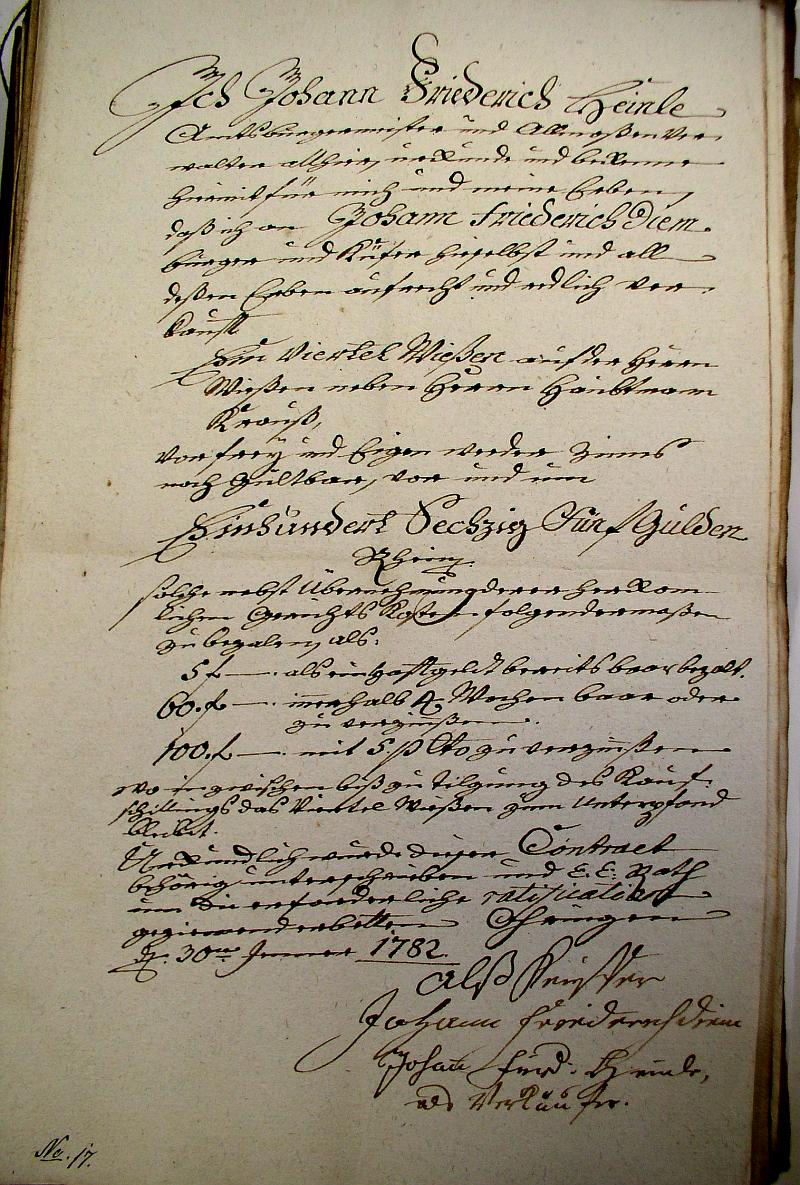 Ich Johann Friederich Heinle
Amtsburgermeister und Allmoßen Ver-
walter allhier, urkunde und bekenne
hiemit für mich und meine Erben,
daß ich an Johann Friederich Diem.
burger und Küfer hieselbst und all
deßen Erben aufrecht und redlich ver-
kauft
Ein Viertel Wießen auf der Herrn
Wießen neben Herrn Haubtmann
Krauß,
vor frey und Eigen weder Zinns
noch Gültbar, vor und um
Einhundert Sechzig Fünf Gulden
Rhein.
solche nebst Übernehmung derer herkom-
lichen Gerichts Kosten folgendermaßen
zu bezalen, als:
5 f — . als ein Haftgeldt bereits baar bezalt.
60. f — . innerhalb 4. Wochen baar oder
zu verzinnßen.
100. f — . mit 5. p Cto zu verzinnßen
wo inzwischen biß zu Tilgung des Kauf-
schillings das Viertel Wießen zum Unterpfand
bleibt.
Urkundlich wurde dieser Contract
behörig unterschrieben und E. E. Rath
um die erforderliche ratification
geziemend erbetten Öhringen
d. 30ten Jenner 1782.
Alß Keuffer
Johann Friederich Diem
Johann Frid. Heinle,
als Verkäufer.
No. 17.